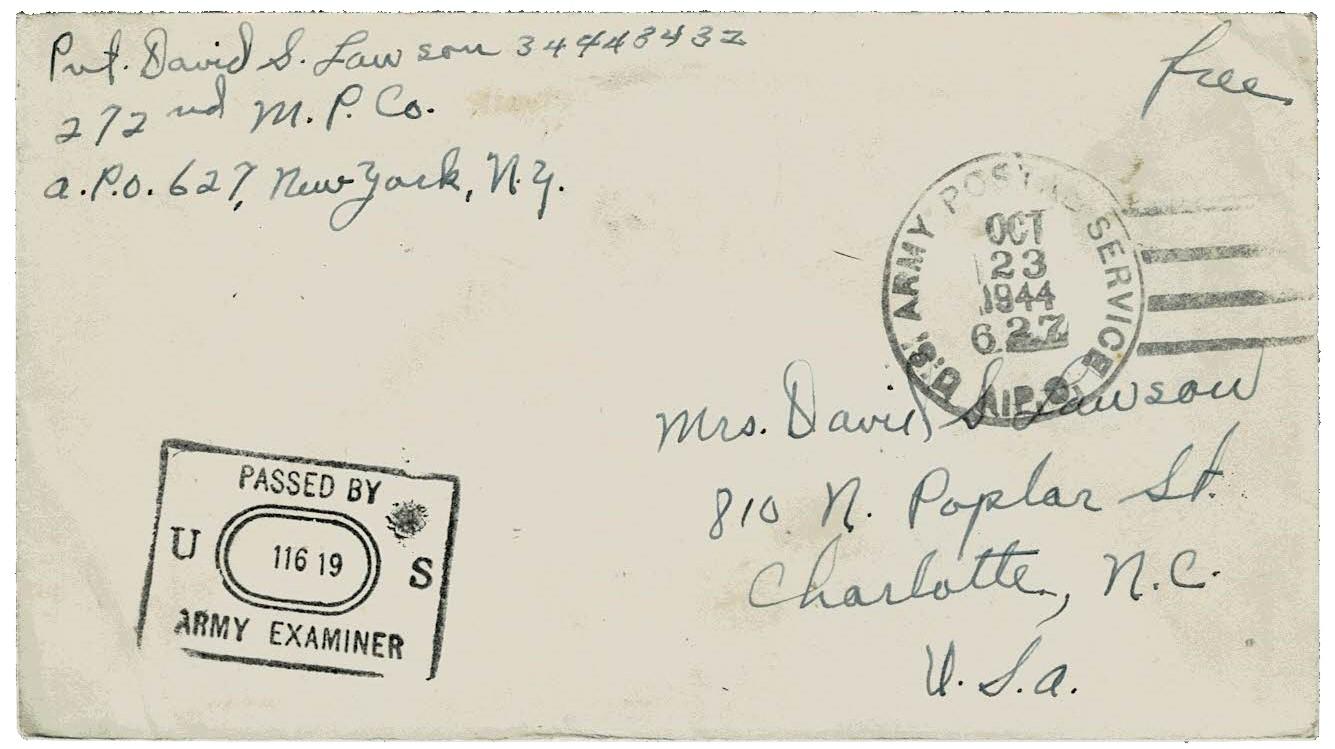 Pvt. David S. Lawson 34448432
272nd M.P. Co.
a.P.o. 627, New York, N.Y.
free
U.S. ARMY POSTAL SERVICE
OCT
23
1944
627
A.P.O.
Mrs. David S Lawson
810 N. Poplar St.
Charlotte, N.C.
U.S.a.
PASSED BY
U 11619 S
ARMY EXAMINER